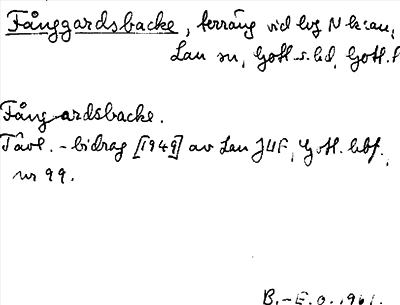 Fånggardsbacke, terräng vid lvg N k:an,
Lau sn, Gotl. s. hd, Gotl. l
Fångardsbacke.
Tävl.-bidrag [1949] av Lau JUF, Gotl. hbf.,
nr 99.
B.-E.O. 1961.